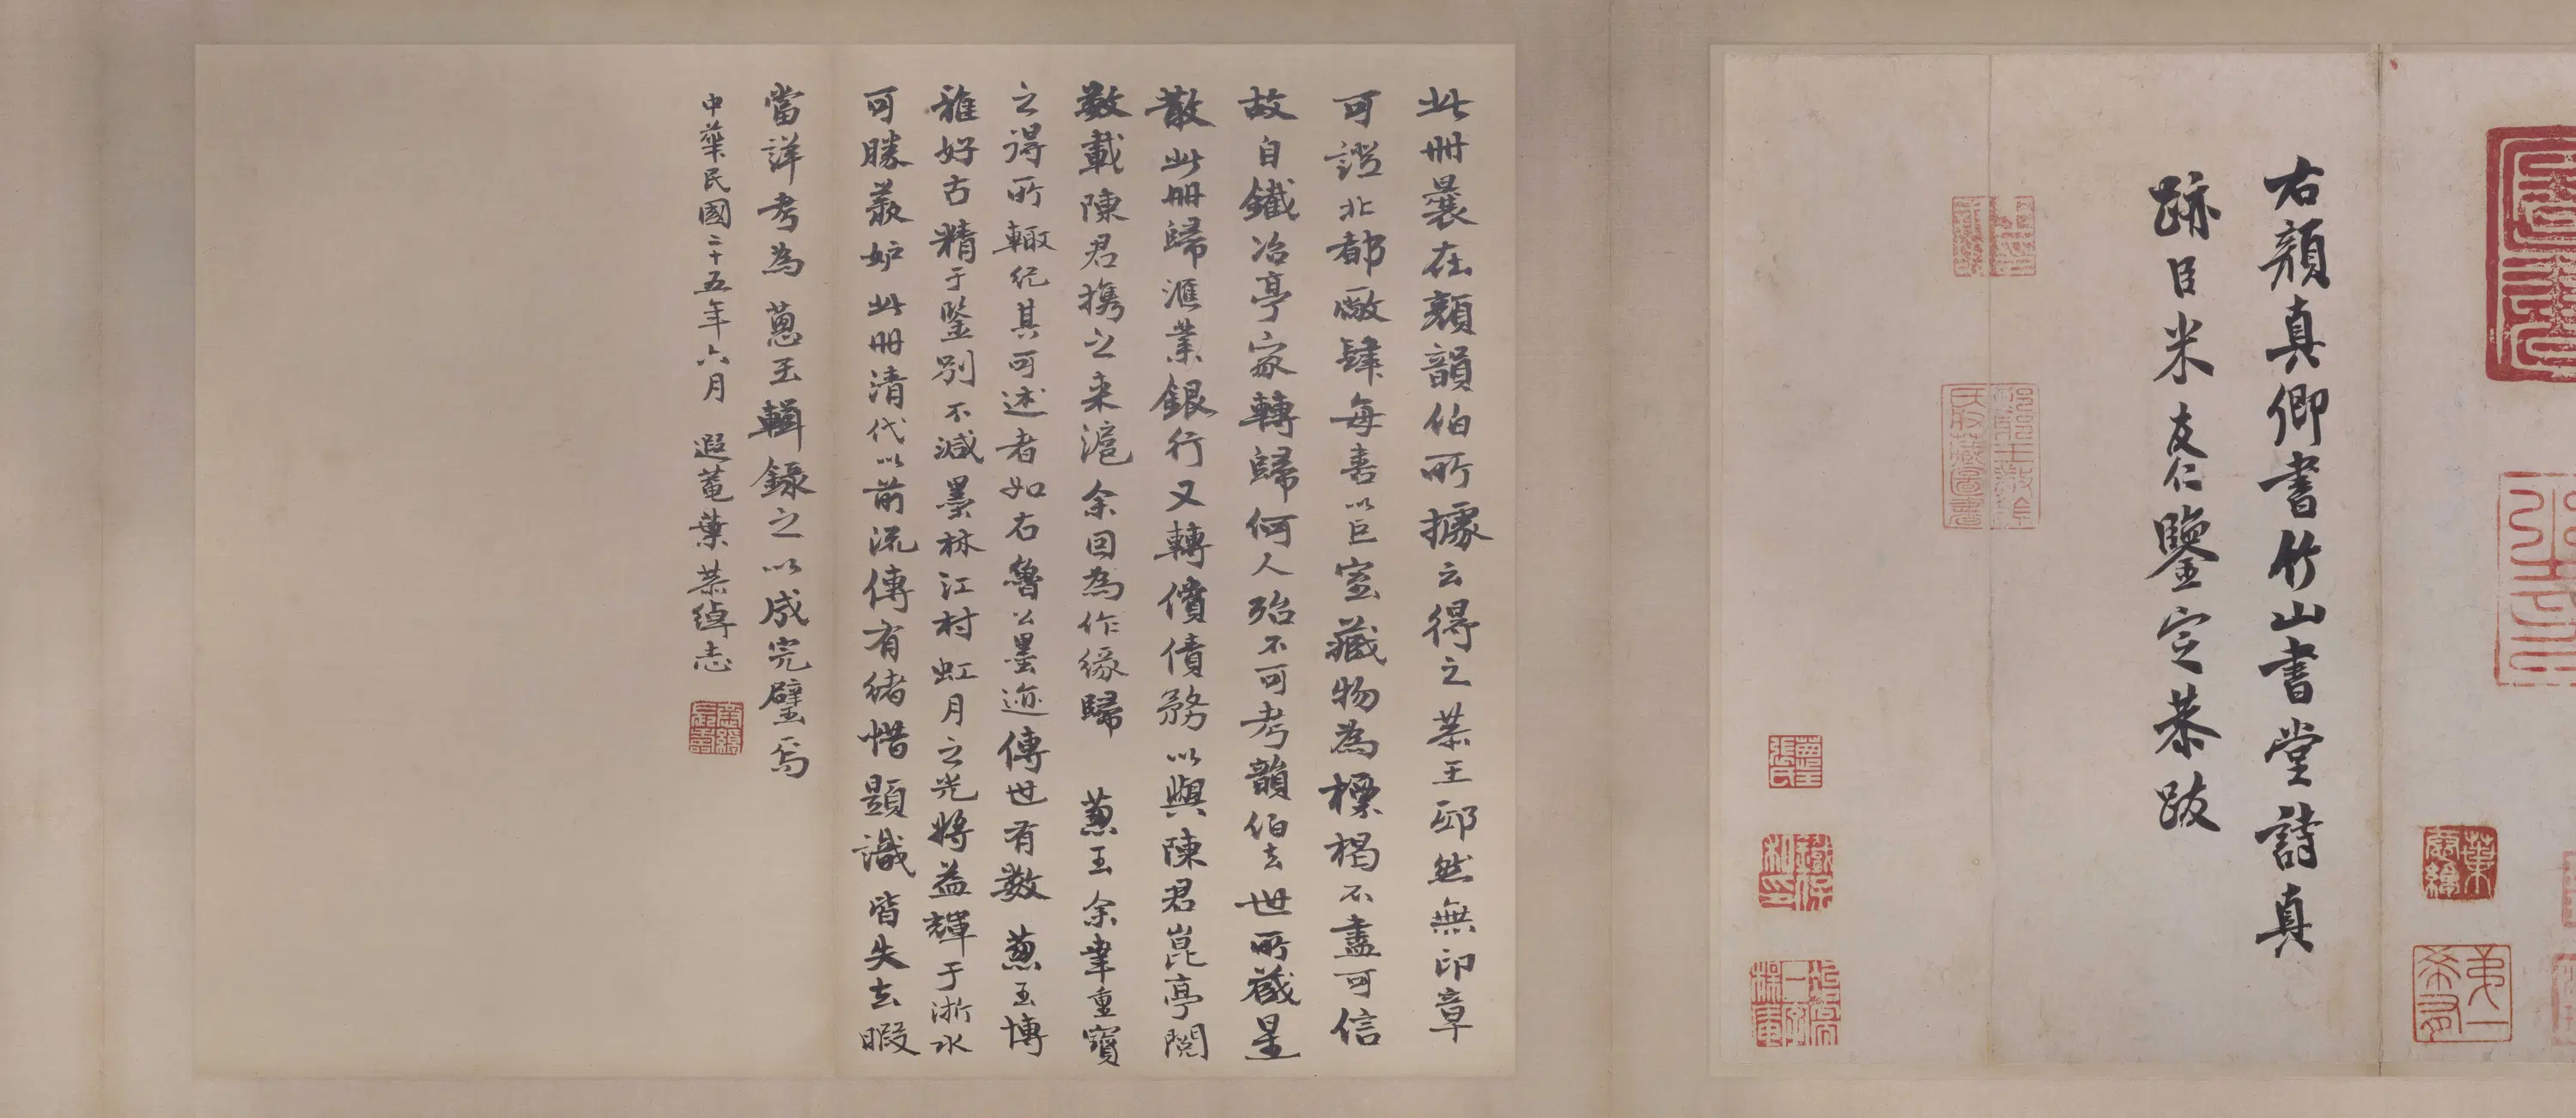 右顏真卿書竹山書堂詩真
跡臣米友仁鑒定恭跋
此冊曩在顏韻伯所據云得之恭王邸然無印章
可證北都廠肆每喜以巨室藏物為標楬不盡可信
故自鐵冶亭家轉歸何人殆不可考韻伯去世所藏星
散此冊歸滙業銀行又轉償債務以與陳君崑亭閱
數載陳君攜之来滬余因為作緣歸 蔥玉余幸重寶
之得所輙紀其可述者如右魯公墨迹傳世有數蔥玉博
雅好古精于鑒別不減墨林江村虹月之光將益輝于浙水
可勝羨妒此冊清代以前流傳有緒惜題識皆失去暇
當詳考為 蔥玉輯錄之以成完璧焉
中華民國二十五年六月 遐菴葉恭綽志
蔥玉
張氏